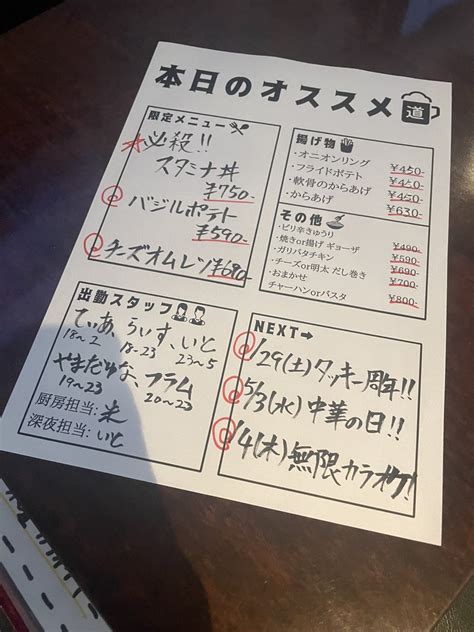 本日のオススメ 道
限定メニュー
必殺!!
スタミナ丼
¥750-
バジルポテト
¥590-
チーズオムレツ¥680-
揚げ物
・オニオンリング ¥450-
・フライドポテト ¥450-
・軟骨のからあげ ¥450-
・からあげ ¥630-
その他
・ピリ辛きゅうり ¥490-
・焼きor揚げ ギョーザ ¥590-
・ガリバタチキン ¥690-
・チーズor明太 だし巻き ¥700-
・おまかせ
チャーハンorパスタ ¥800-
出勤スタッフ
てぃあ、らいす、いと
18~2 18~23 23~5
やまだゆな、フラム
19~23 20~23
厨房担当: 米
深夜担当: いと
NEXT→
/29(土)タッキー周年!!
5/3(水)中華の日!!
/4(木)無限カラオケ!